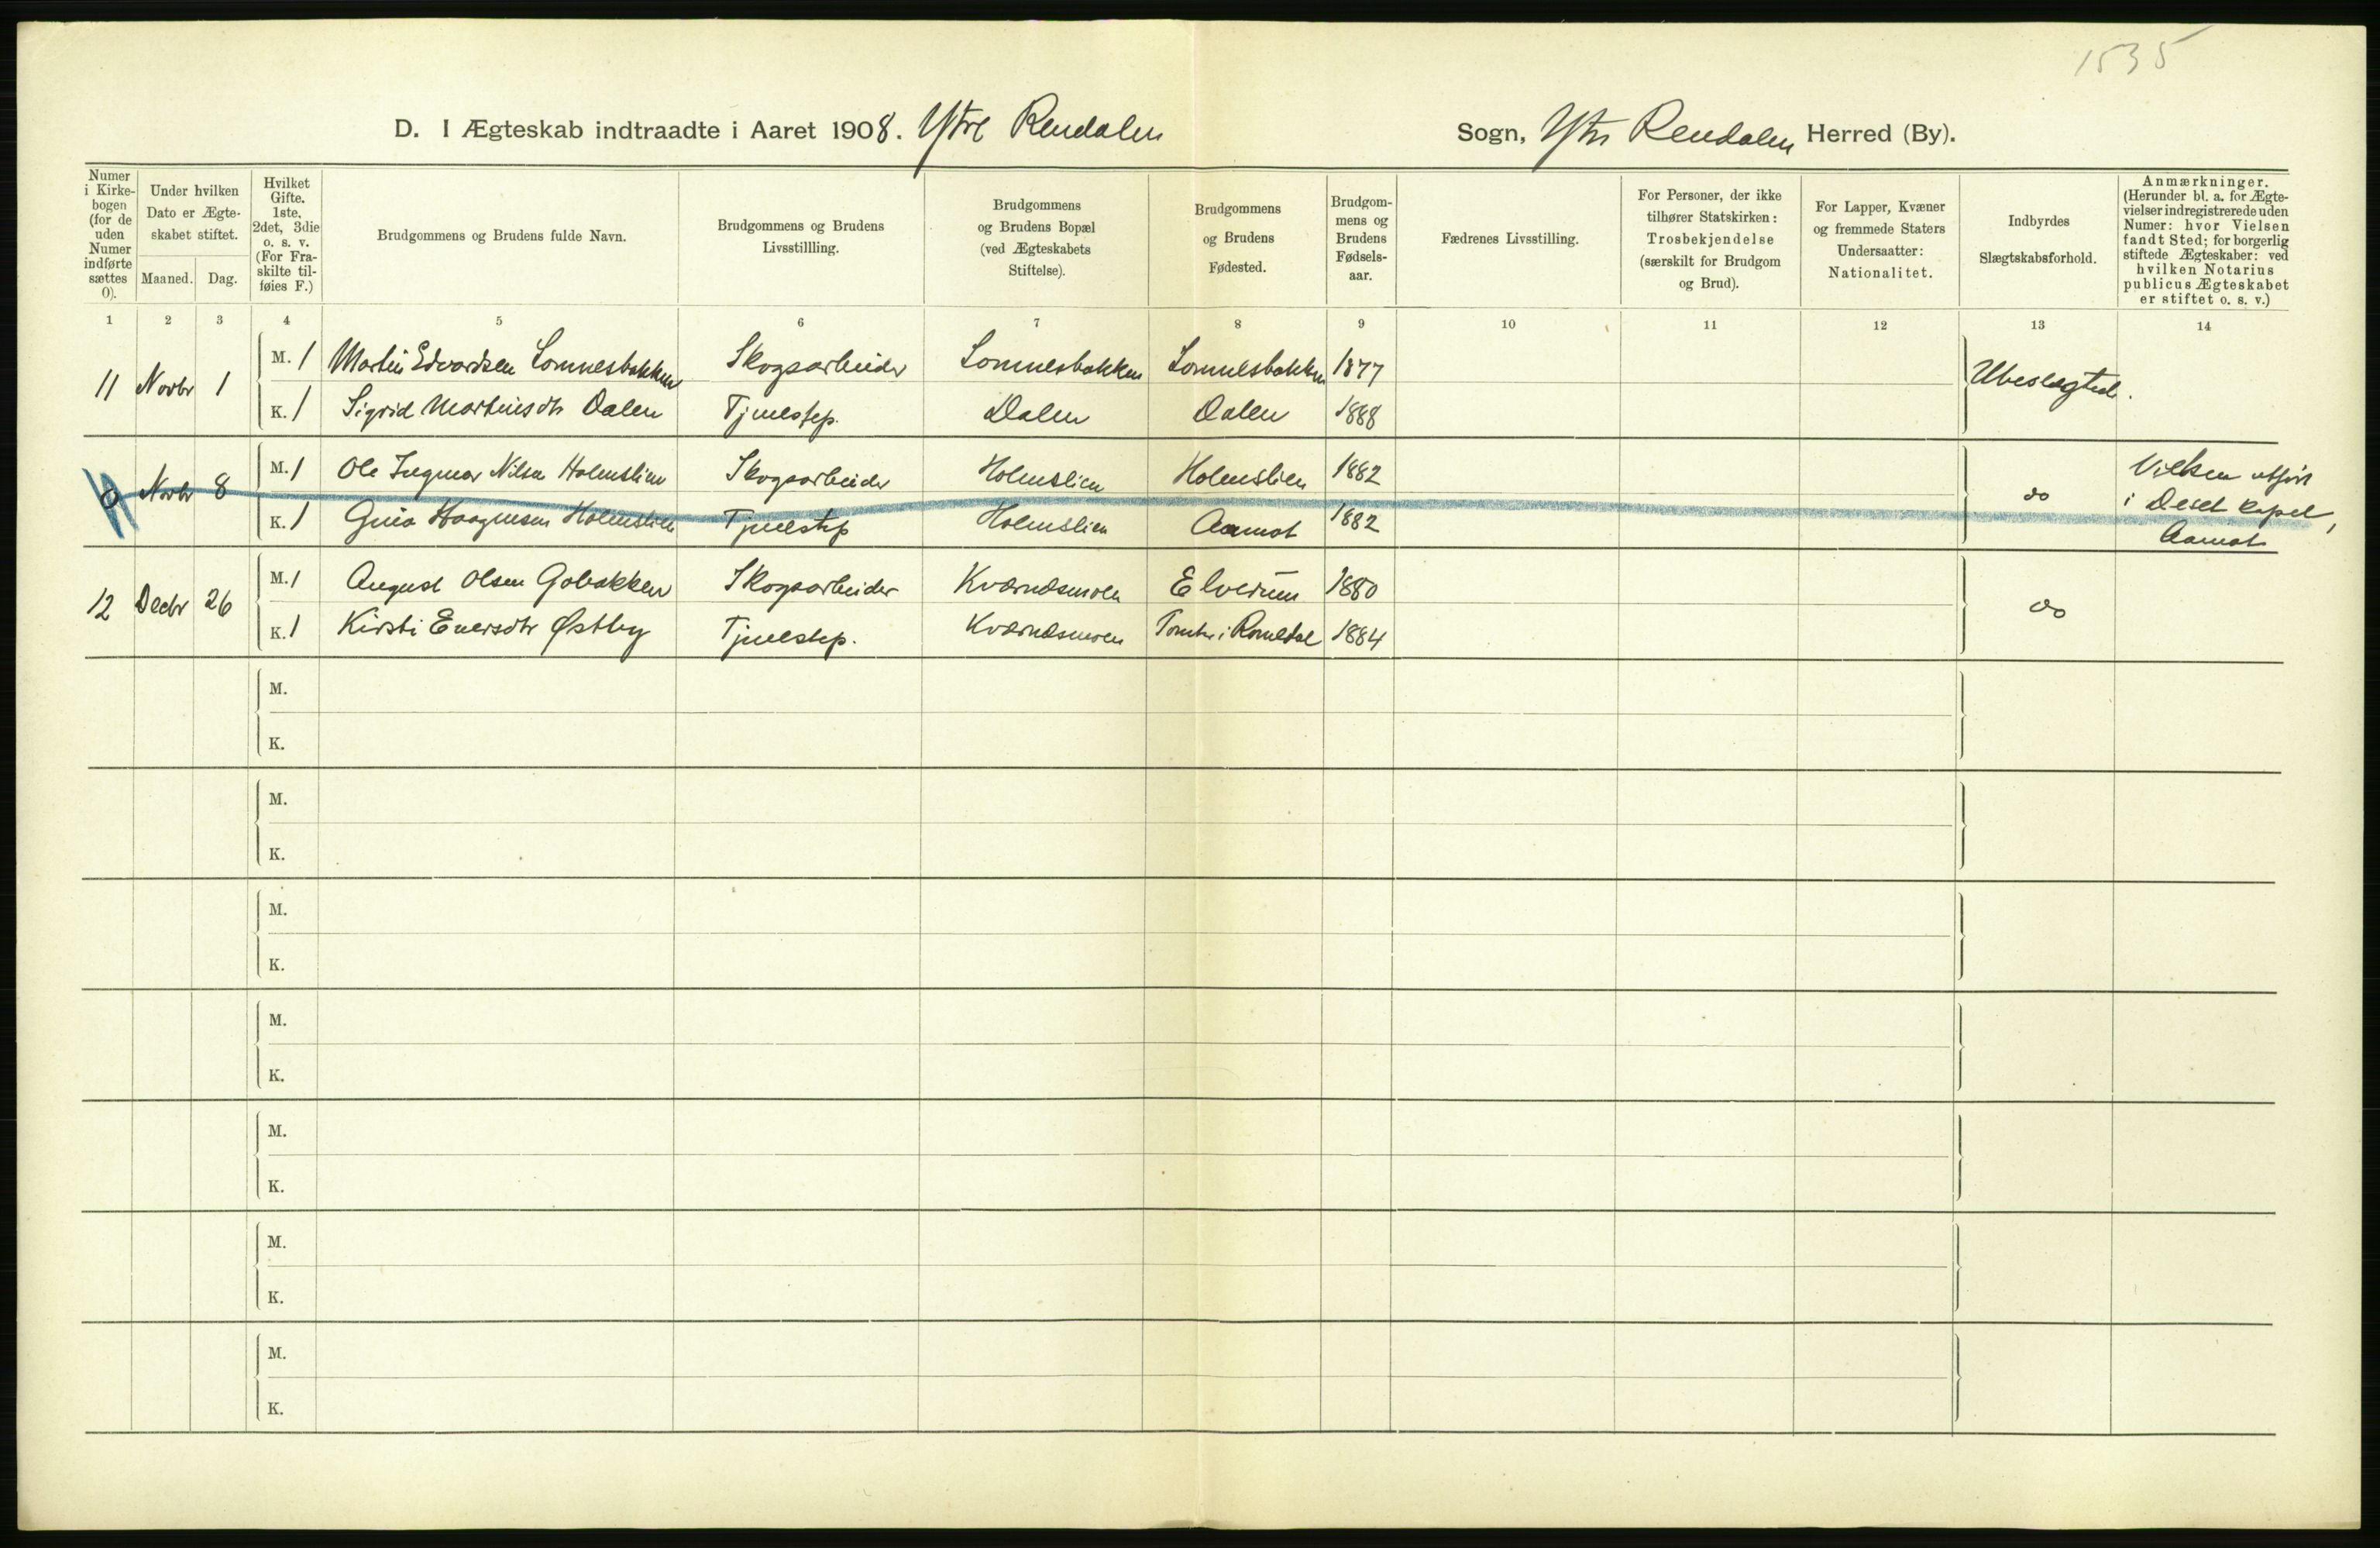 1535
D. I Ægteskab indtraadte i Aaret 1908. Ytre Rendalen Sogn, Ytre Rendalen Herred (By).
Numer i Kirke-bogen (for de uden Numer indførte sættes 0).
Under hvilken Dato er Ægte-skabet stiftet.
Maaned. Dag.
Hvilket Gifte. 1ste, 2det, 3die o. s. v. (For Fra-skilte til-føies F.)
Brudgommens og Brudens fulde Navn.
Brudgommens og Brudens Livsstillling.
Brudgommens og Brudens Bopæl (ved Ægteskabets Stiftelse).
Brudgommens og Brudens Fødested.
Brudgom-mens og Brudens Fødsels-aar.
Fædrenes Livsstilling.
For Personer, der ikke tilhører Statskirken: Trosbekjendelse (særskilt for Brudgom og Brud).
For Lapper, Kvæner og fremmede Staters Undersaatter: Nationalitet.
Indbyrdes Slægtskabsforhold.
Anmærkninger. (Herunder bl. a. for Ægte-vielser indregistrerede uden Numer: hvor Vielsen fandt Sted; for borgerlig stiftede Ægteskaber: ved hvilken Notarius publicus Ægteskabet er stiftet o. s. v.)
1 2 3 4 5 6 7 8 9 10 11 12 13 14
11 Novbr 1 M. 1 Martin Edvardsen Lomnesbakken Skogsarbeider Lomnesbakken Lomnesbakken 1877 Ubeslægtede.
K. 1 Sigrid Martinsdtr Dalen Tjenestep. Dalen Dalen 1888
0 Novbr 8 M. 1 Ole Ingmar Nilsen Holmslien Skogsarbeider Holmslien Holmslien 1882 do Vielsen utført
i Deset kapel,
K. 1 Gina Haagensen Holmslien Tjenestep Holmslien Aamot 1882 Aamot
12 Decbr 26 M. 1 August Olsen Gobakken Skogsarbeider Kværnæsmoen Elverum 1880 do
K. 1 Kirsti Enersdtr Østby Tjenestep. Kværnæsmoen i Romedal 1884
M.
K.
M.
K.
M.
K.
M.
K.
M.
K.
M.
K.
M.
K.